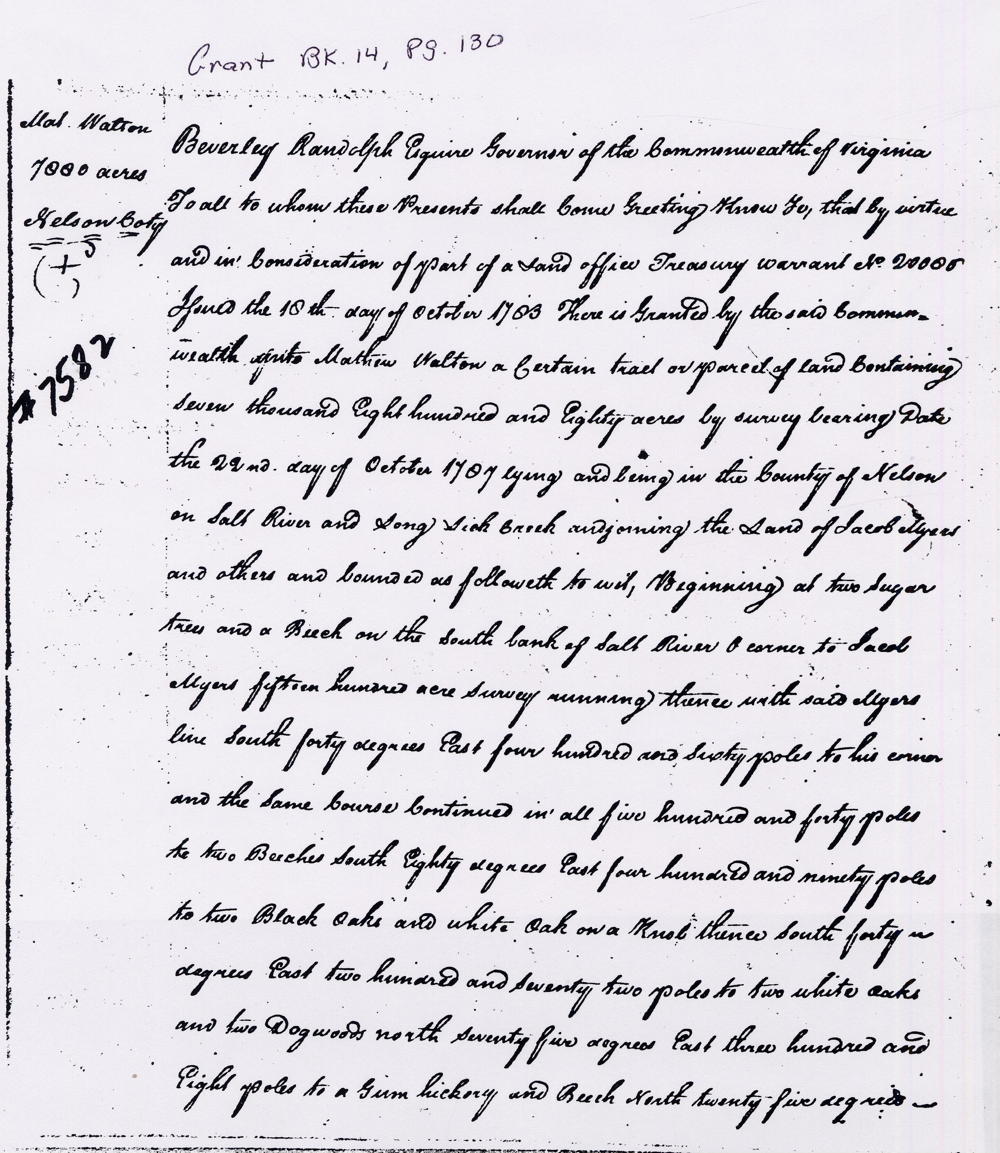 Grant BK. 14, Pg. 130
Mat. Walton
7880 acres
Nelson Coty
(+)
#7582
Beverley Randolph Esquire Governor of the Commonwealth of Virginia
To all to whom these Presents shall Come Greeting Know Ye, that by virtue
and in Consideration of part of a Land office Treasury warrant No.
Issued the 18th day of October 1783 There is Granted by the said Common=
wealth unto Mathew Walton a Certain tract or parcel of land Containing
Seven thousand Eight hundred and Eighty acres by survey bearing Date
the 22nd. day of October 1787 lying and being in the County of Nelson
on Salt River and Long Lick Creek andjoining the Land of Jacob Myers
and others and bounded as followeth to wit, Beginning at two Sugar
trees and a Beech on the South bank of Salt River & corner to Jacob
Myers fifteen hundred acre Survey running thence with said Myers
line South forty degrees East four hundred and Sixty poles to his corner
and the Same Course Continued in all five hundred and forty poles
to two Beeches South Eighty degrees East four hundred and ninety poles
to two Black Oaks and white Oak on a Knob thence South forty
degrees East two hundred and Seventy two poles to two white oaks
and two Dogwoods north Seventy five degrees East three hundred and
Eight poles to a Gum hickory and Beech North twenty five degrees